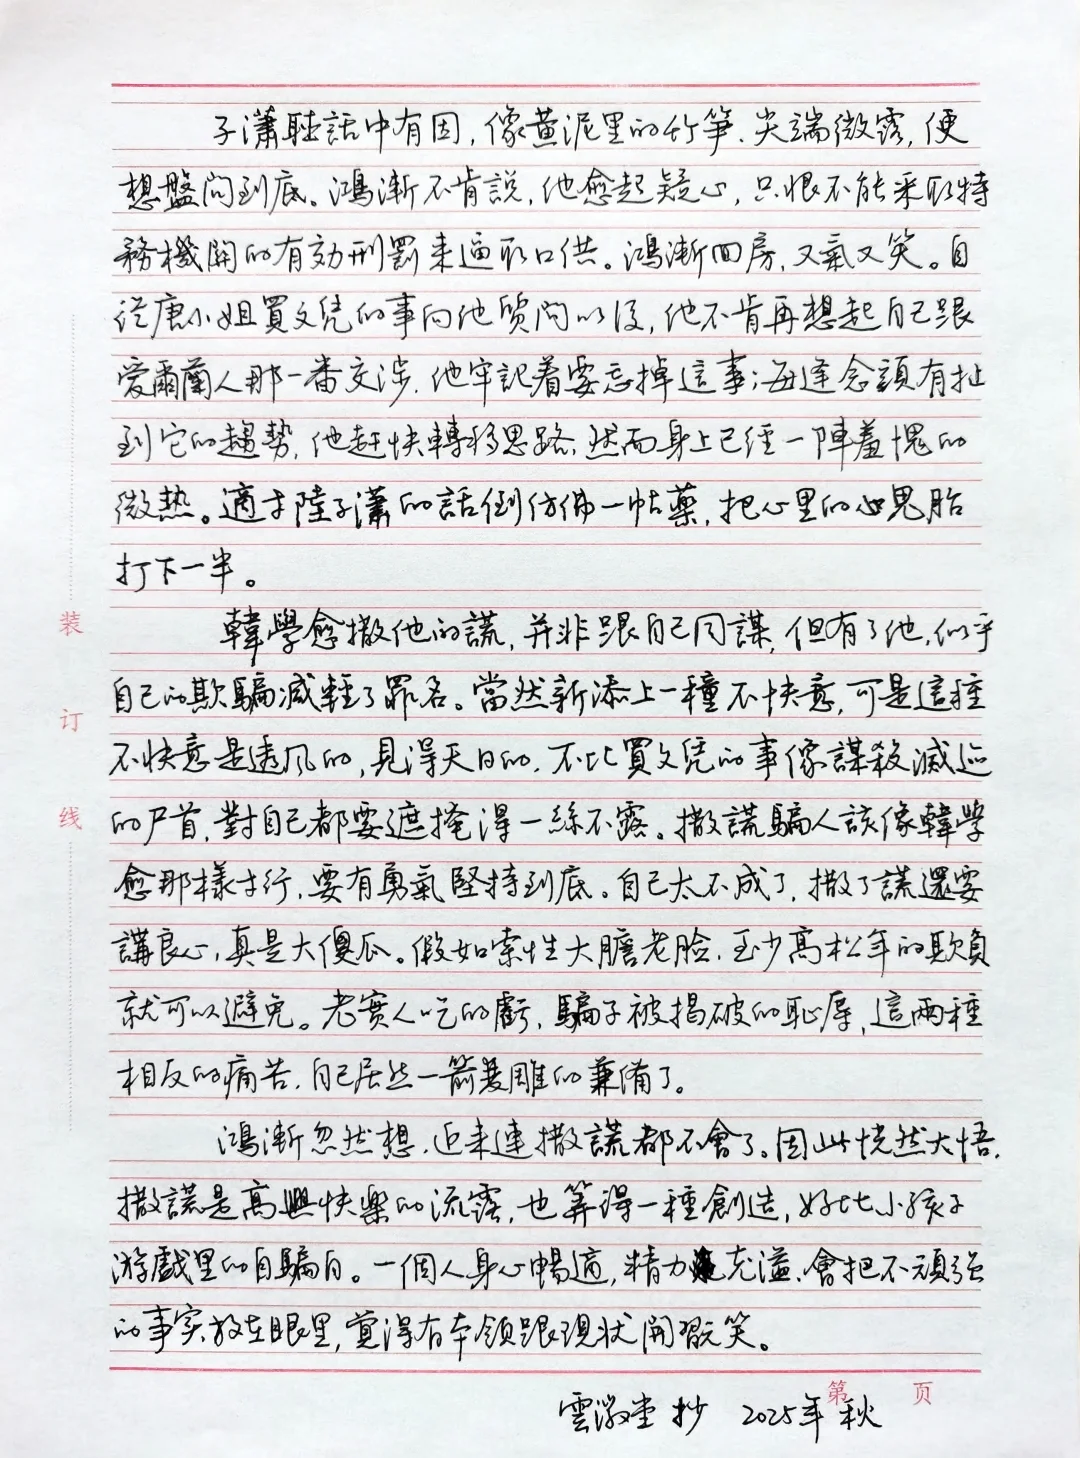 子瀟聽話中有因，像黃泥里的竹筍、尖端微露，便
想盤問到底。鴻漸不肯說，他愈起疑心，只恨不能采取特
務機關的有効刑罰来逼取口供。鴻漸回房，又氣又笑。自
從唐小姐買文凭的事向他質問以後，他不肯再想起自己跟
愛爾蘭人那一番交涉，他牢記着要忘掉這事；每逢念頭有扯
到它的趨勢，他赶快轉移思路，然而身上已經一陣羞愧的
微热。適才陸子瀟的話倒仿佛一帖藥，把心里的心鬼胎
打下一半。
韓學愈撒他的謊，并非跟自己同謀，但有了他，似乎
自己的欺騙减輕了罪名。當然新添上一種不快意，可是這種
不快意是透风的，見得天日的，不比買文凭的事像謀殺滅迹
的尸首，對自己都要遮掩得一絲不露。撒謊騙人該像韓學
愈那樣才行，要有勇氣堅持到底。自己太不成了，撒了謊還要
講良心，真是大傻瓜。假如索性大膽老脸，至少高松年的欺負
就可以避免。老實人吃的虧，騙子被揭破的恥辱，這兩種
相反的痛苦，自己居然一箭雙雕的兼備了。
鴻漸忽然想，近来連撒謊都不會了。因此恍然大悟，
撒謊是高興快樂的流露，也算得一種創造，好比小孩子
游戲里的自騙自。一個人身心暢適，精力充溢，會把不頑强
的事实放在眼里，覺得有本領跟現状開玩笑。
雲澂堂抄 2025年秋
第 页
装
订
线